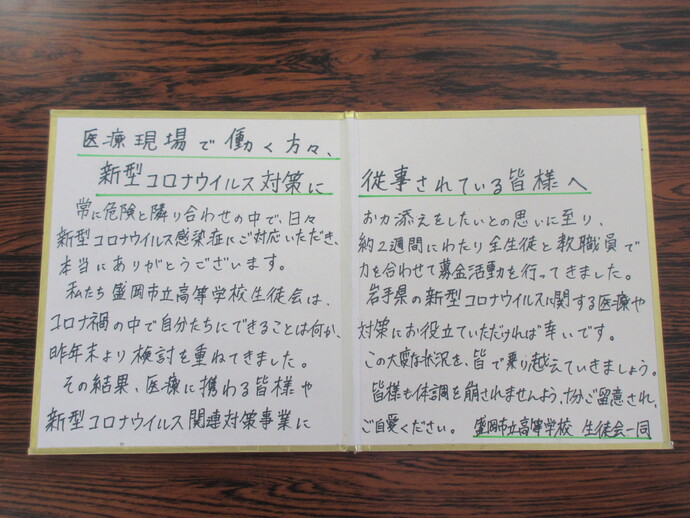 医療現場で働く方々、
新型コロナウイルス対策に
常に危険と隣り合わせの中で、日々
新型コロナウイルス感染症にご対応いただき、
本当にありがとうございます。
私たち盛岡市立高等学校生徒会は、
コロナ禍の中で自分たちにできることは何か、
昨年末より検討を重ねてきました。
その結果、医療に携わる皆様や
新型コロナウイルス関連対策事業に
従事されている皆様へ
お力添えをしたいとの思いに至り、
約2週間にわたり全生徒と教職員で
力を合わせて募金活動を行ってきました。
岩手県の新型コロナウイルスに関する医療や
対策にお役立ていただければ幸いです。
この大変な状況を、皆で乗り越えていきましょう。
皆様も体調を崩されませんよう、十分ご留意され、
ご自愛ください。 盛岡市立高等学校 生徒会一同